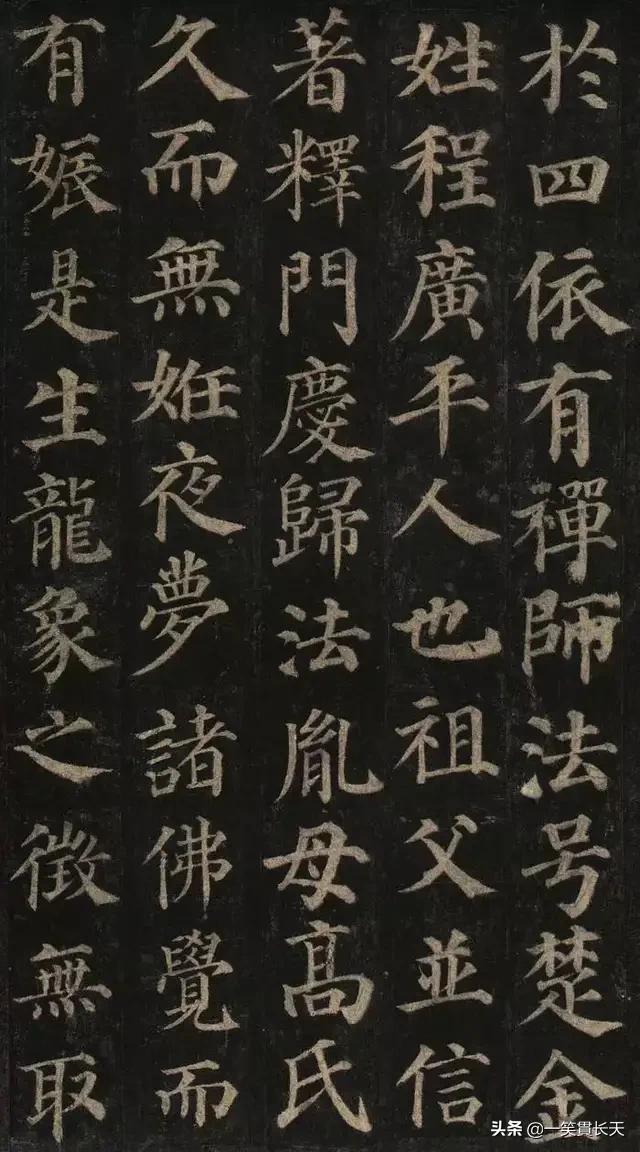 於四依有禪師法号楚金
姓程廣平人也祖父並信
著釋門慶歸法胤母高氏
久而無姙夜夢諸佛覺而
有娠是生龍象之徵無取
头条 @一笑貫长天